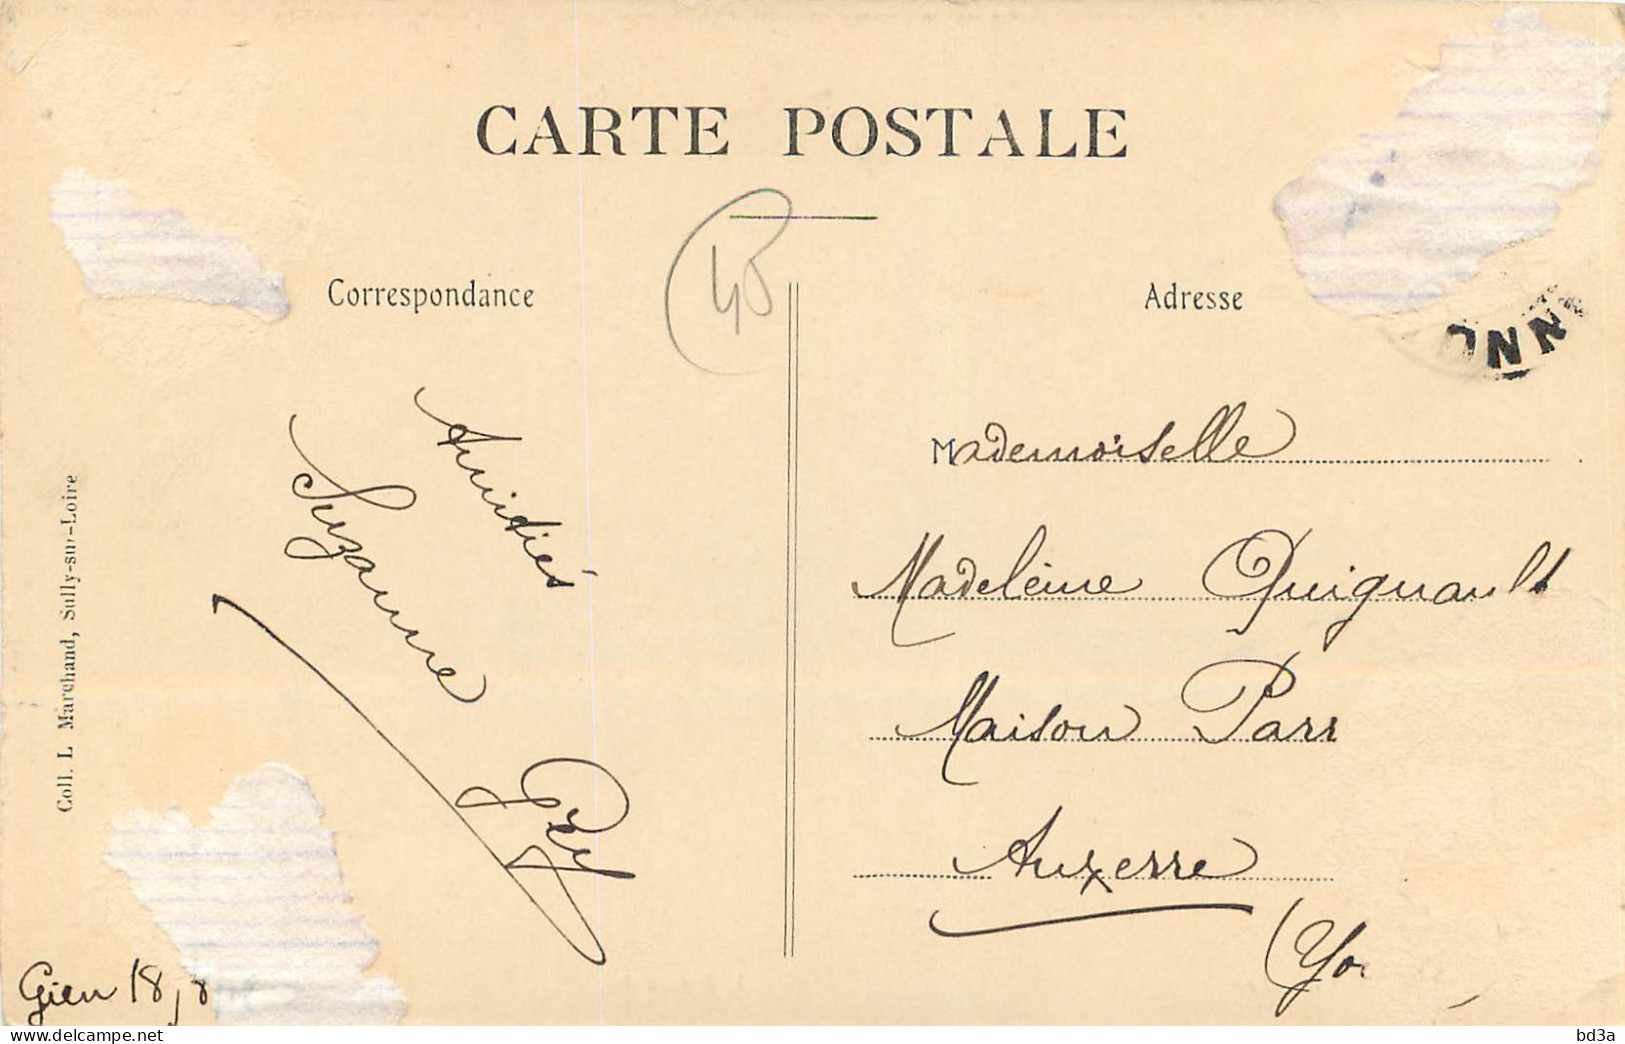 CARTE POSTALE
45
Correspondance
Adresse
NN
Amitiés
Suzanne
Mademoiselle
Madeleine Quignault
Maison Parr
Auxerre
(Yo
Gien 18, 8
Coll. L. Marchand, Sully-sur-Loire
bd3a